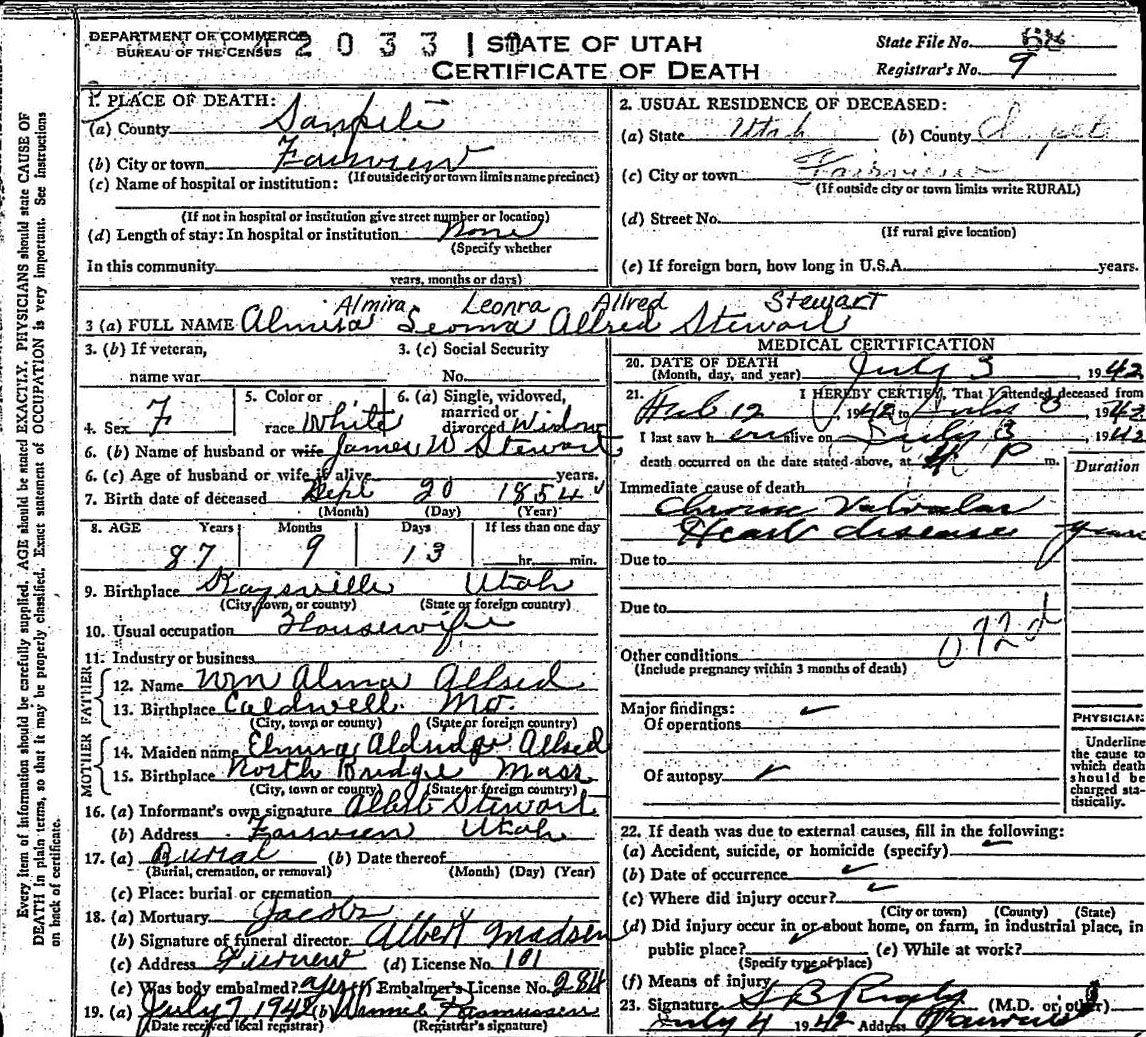 DEPARTMENT OF COMMERCE
BUREAU OF THE CENSUS
2 0 3 3 1
STATE OF UTAH
CERTIFICATE OF DEATH
State File No.
Registrar's No. 9
Every item of information should be carefully supplied. AGE should be stated EXACTLY. PHYSICIANS should state CAUSE OF
DEATH in plain terms, so that it may be properly classified. Exact statement of OCCUPATION is very important. See Instructions
on back of certificate.
1. PLACE OF DEATH:
(a) County Sanpete
(b) City or town Fairview
(If outside city or town limits name precinct)
(c) Name of hospital or institution:
(If not in hospital or institution give street number or location)
(d) Length of stay: In hospital or institution None
(Specify whether
In this community
years, months or days)
2. USUAL RESIDENCE OF DECEASED:
(a) State Utah (b) County
(c) City or town Fairview
(If outside city or town limits write RURAL)
(d) Street No.
(If rural give location)
(e) If foreign born, how long in U.S.A. years.
Almira Leonra Allred Stewart
3 (a) FULL NAME Almira Leonra Allred Stewart
3. (b) If veteran,
name war
3. (c) Social Security
No.
4. Sex F
5. Color or
race White
6. (a) Single, widowed,
married or
divorced Widow
6. (b) Name of husband or wife James W Stewart
6. (c) Age of husband or wife if alive years.
7. Birth date of deceased Sept 20 1854
(Month) (Day) (Year)
8. AGE Years Months Days If less than one day
87 9 13 hr. min.
9. Birthplace Kaysville Utah
(City, town, or county) (State or foreign country)
10. Usual occupation Housewife
11. Industry or business
FATHER
12. Name Wm Alma Allred
13. Birthplace Caldwell Mo.
(City, town or county) (State or foreign country)
MOTHER
14. Maiden name Elmira Aldridge Allred
15. Birthplace North Bridge Mass
(City, town or county) (State or foreign country)
16. (a) Informant's own signature Albert Stewart
(b) Address Fairview Utah
17. (a) Burial (b) Date thereof
(Burial, cremation, or removal) (Month) (Day) (Year)
(c) Place: burial or cremation
18. (a) Mortuary Jacobs
(b) Signature of funeral director Albert Madsen
(c) Address Fairview (d) License No. 101
(e) Was body embalmed? yes Embalmer's License No. 284
19. (a) July 7 1942 (b) Rasmussen
(Date received local registrar) (Registrar's signature)
MEDICAL CERTIFICATION
20. DATE OF DEATH
(Month, day, and year) July 3, 1942
21. I HEREBY CERTIFY, That I attended deceased from
Feb 12 1942 to July 3, 1942
I last saw her alive on July 3, 1942
death occurred on the date stated above, at P m.
Duration
Immediate cause of death
Chronic Valvular
Heart disease years
Due to
Due to
072d
Other conditions
(Include pregnancy within 3 months of death)
Major findings:
Of operations
Of autopsy
PHYSICIAN
Underline
the cause to
which death
should be
charged sta-
tistically.
22. If death was due to external causes, fill in the following:
(a) Accident, suicide, or homicide (specify)
(b) Date of occurrence
(c) Where did injury occur?
(City or town) (County) (State)
(d) Did injury occur in or about home, on farm, in industrial place, in
public place? (e) While at work?
(Specify type of place)
(f) Means of injury
23. Signature B Rigby (M.D. or other)
July 4 1942 Address Fairview